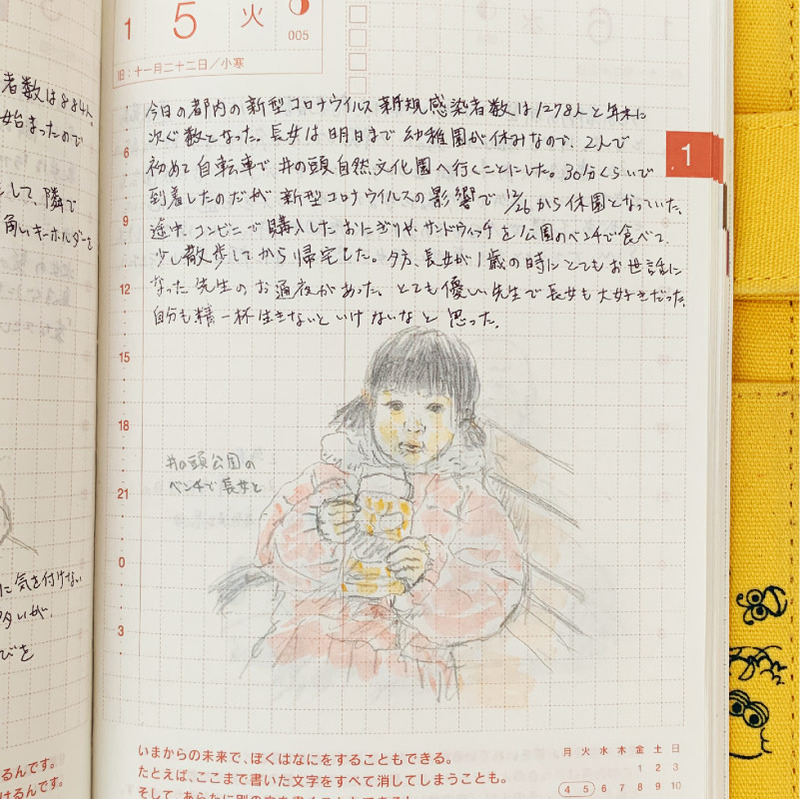 者数は884人。
始まったので
して、隣で
角いキーホルダーを
に気を付けない
多いが、
びを
けるんです。
1 5 火
005
旧：十一月二十二日／小寒
今日の都内の新型コロナウイルス新規感染者数は1278人と年末に
次ぐ数となった。長女は明日まで幼稚園が休みなので、2人で
初めて自転車で井の頭自然文化園へ行くことにした。30分くらいで
到着したのだが新型コロナウイルスの影響で12/26から休園となっていた。
途中、コンビニで購入したおにぎりや、サンドウィッチを公園のベンチで食べて、
少し散歩してから帰宅した。夕方、長女が1歳の時にとてもお世話に
なった先生のお通夜があった。とても優しい先生で長女も大好きだった。
自分も精一杯生きないといけないなと思った。
6
9
12
15
18
21
0
3
1
井の頭公園の
ベンチで長女と
いまからの未来で、ぼくはなにをすることもできる。
たとえば、ここまで書いた文字をすべて消してしまうことも。
そして、あらたに別の文を書くこともできる
月 火 水 木 金 土 日
1 2 3
4 5 6 7 8 9 10